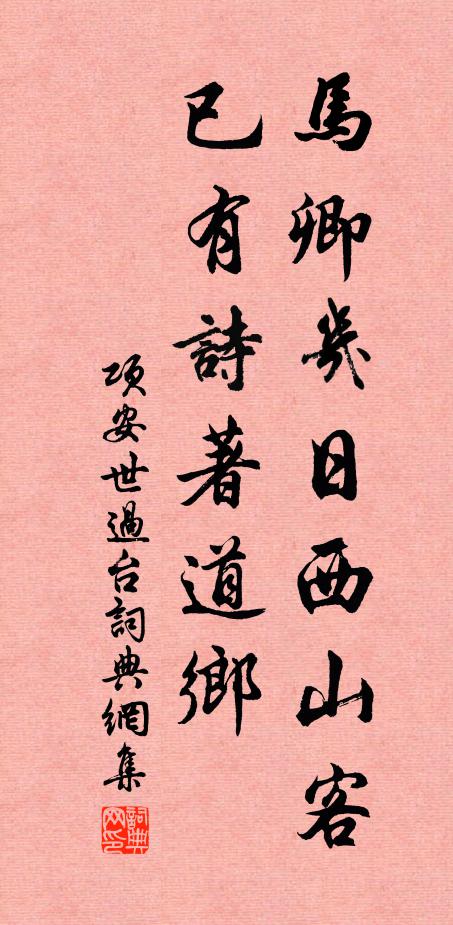 馬卿幾日西山客
已有詩著道鄉
項安世過台詞典網集
詞典网印